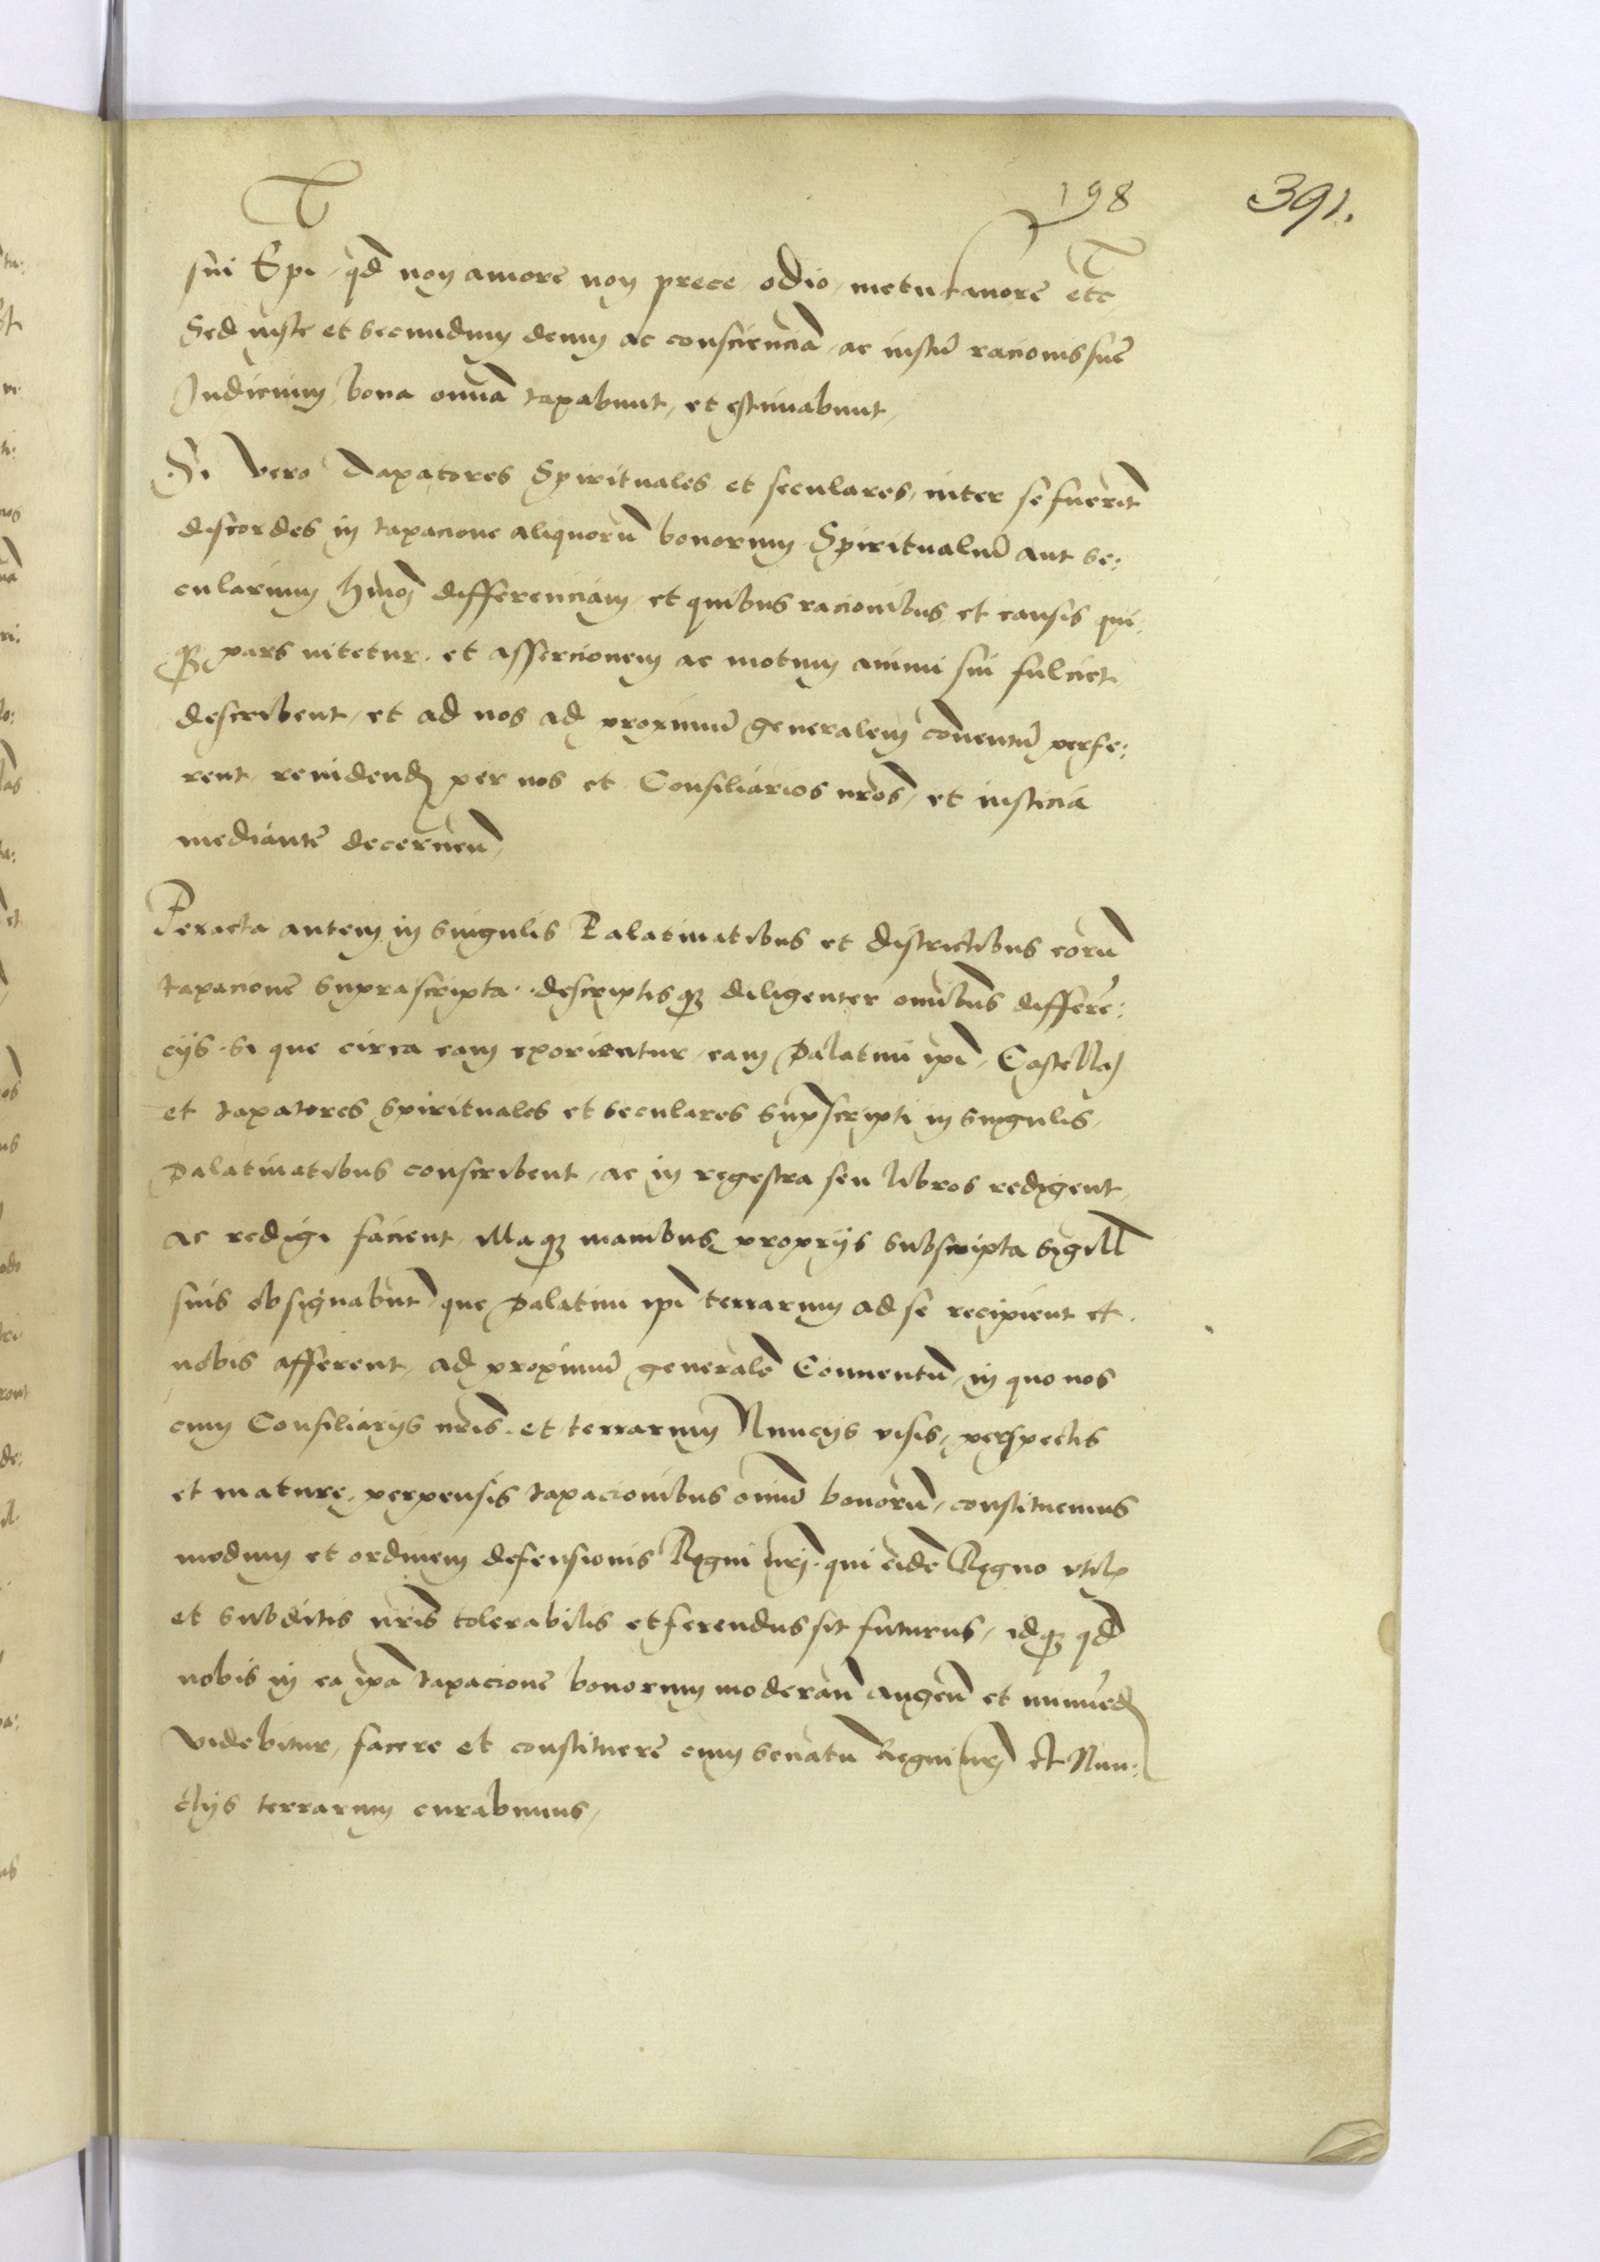 198
391.
sui Epi, qd non amore non prece, odio, metu favore etc
Sed iuste et secundum deum ac conscienciā, ac iustū racionis suē
Iudicium, bona omnā taxabunt, et estimabunt,
Si vero Taxatores Spirituales et seculares, inter se fuerit
discordes in taxacione aliquorū bonorum Spiritualiū aut se:
cularium hmoi differenciam, et quibus racionibus et causis qui:
q3 pars nitetur, et assercionem ac motum animi sui fulciet
describent, et ad nos ad proximū generalem cōventū perfe:
rent, revidend per nos et Consiliarios nros, et iusticia
mediantē decernen,
Peracta autem in singulis Palatinatibus et districtibus eorū
taxacionē suprascripta, descriptisq3 diligenter omībus differē:
cijs, si que circa eam exorientur, eam Palatini ipī, Castellaṇ
et taxatores spirituales et seculares supscripti in singulis,
Palatinatibus conscribent, ac in regestra seu libros redigent,
ac redigi facient, illaq3 manibus proprijs subscripta sigill
suis obsignabūt, que Palatini ipī terrarum ad se recipient et
nobis afferent, ad proximū generalē Conventū, in quo nos
cum Consiliarijs nris, et terrarum Nuncijs visis, perspectis
et mature perpensis taxacionibus oīniū bonorū, constituemus
modum et ordinem defensionis Regni nrj, qui eidē Regno utilis
et subditis nris tolerabilis et ferendus sit futurus, idq3 qd
nobis in ea ipā taxacionē bonorum moderan augen et minuēd
videbitur, facere et constituere cum senatu Regni nrj et Nun:
cijs terrarum curabimus,